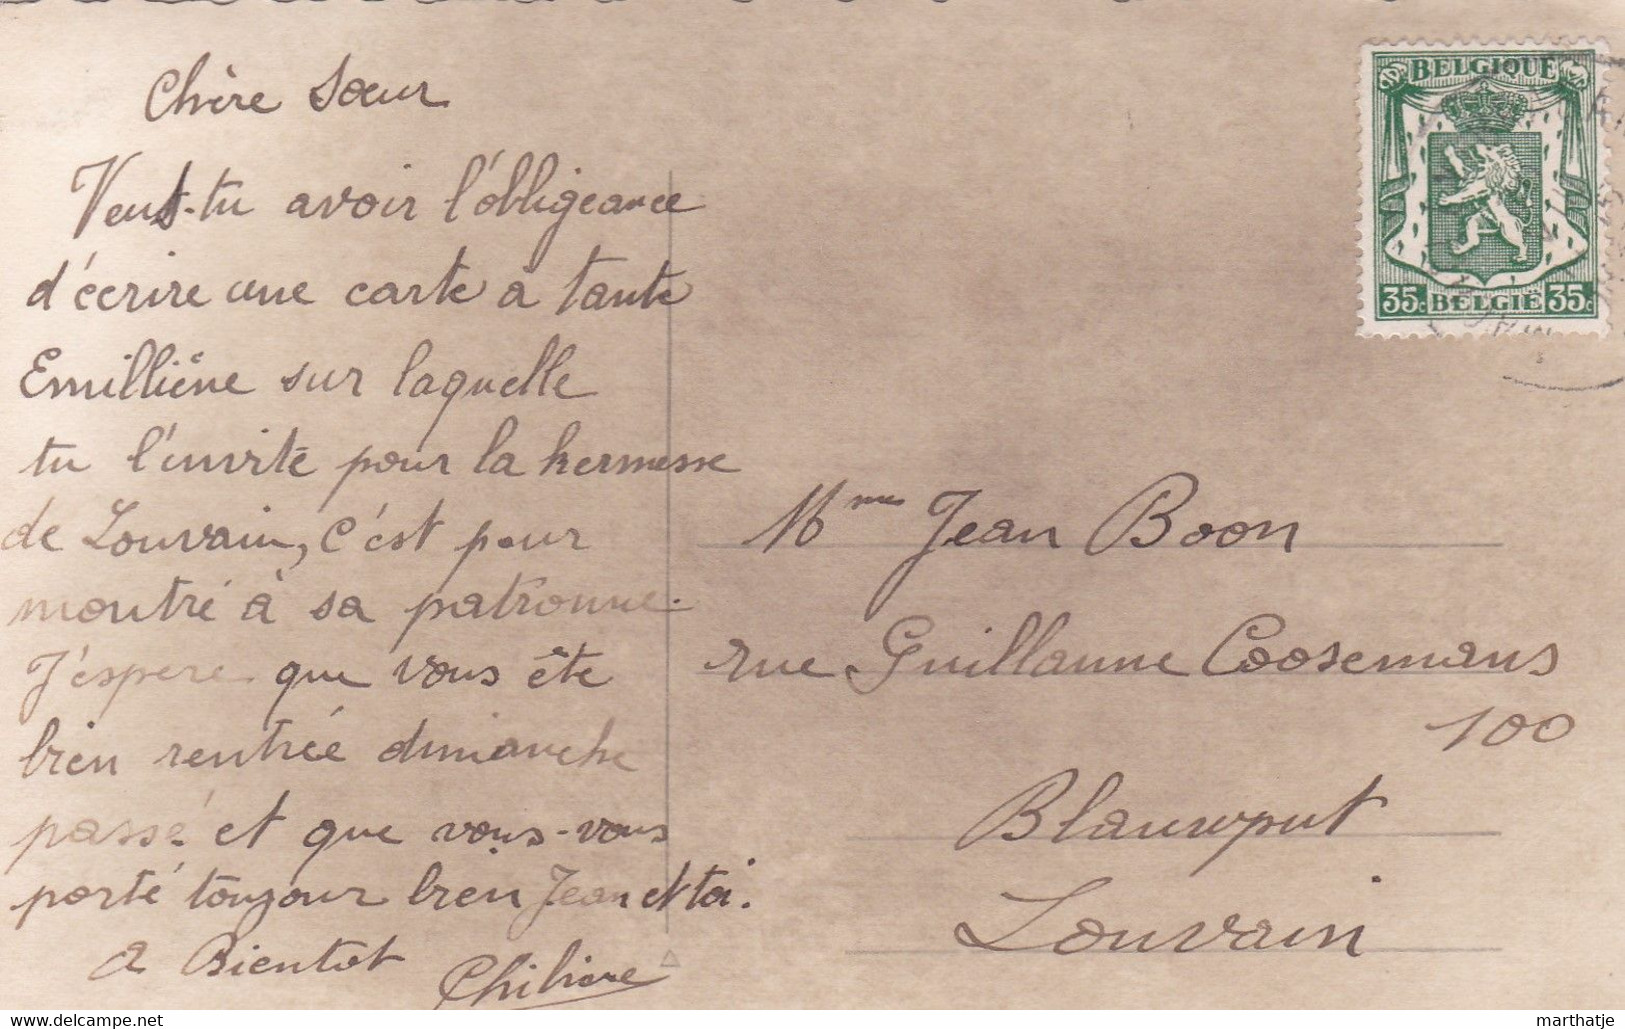 Chère Sœur
Veux-tu avoir l'obligeance
d'écrire une carte à tante
Emilliène sur laquelle
tu l'invité pour la kermesse
de Louvain, c'est pour
montré à sa patronne.
J'espere que vous ête
bien rentrée dimanche
passé et que vous-vous
porté toujour bien Jean et toi.
a Bientot
BELGIQUE
35c BELGIË 35c
Mme Jean Boon
rue Guillaume Coosemans
100
Blauwput
Louvain
www.delcampe.net
marthatje